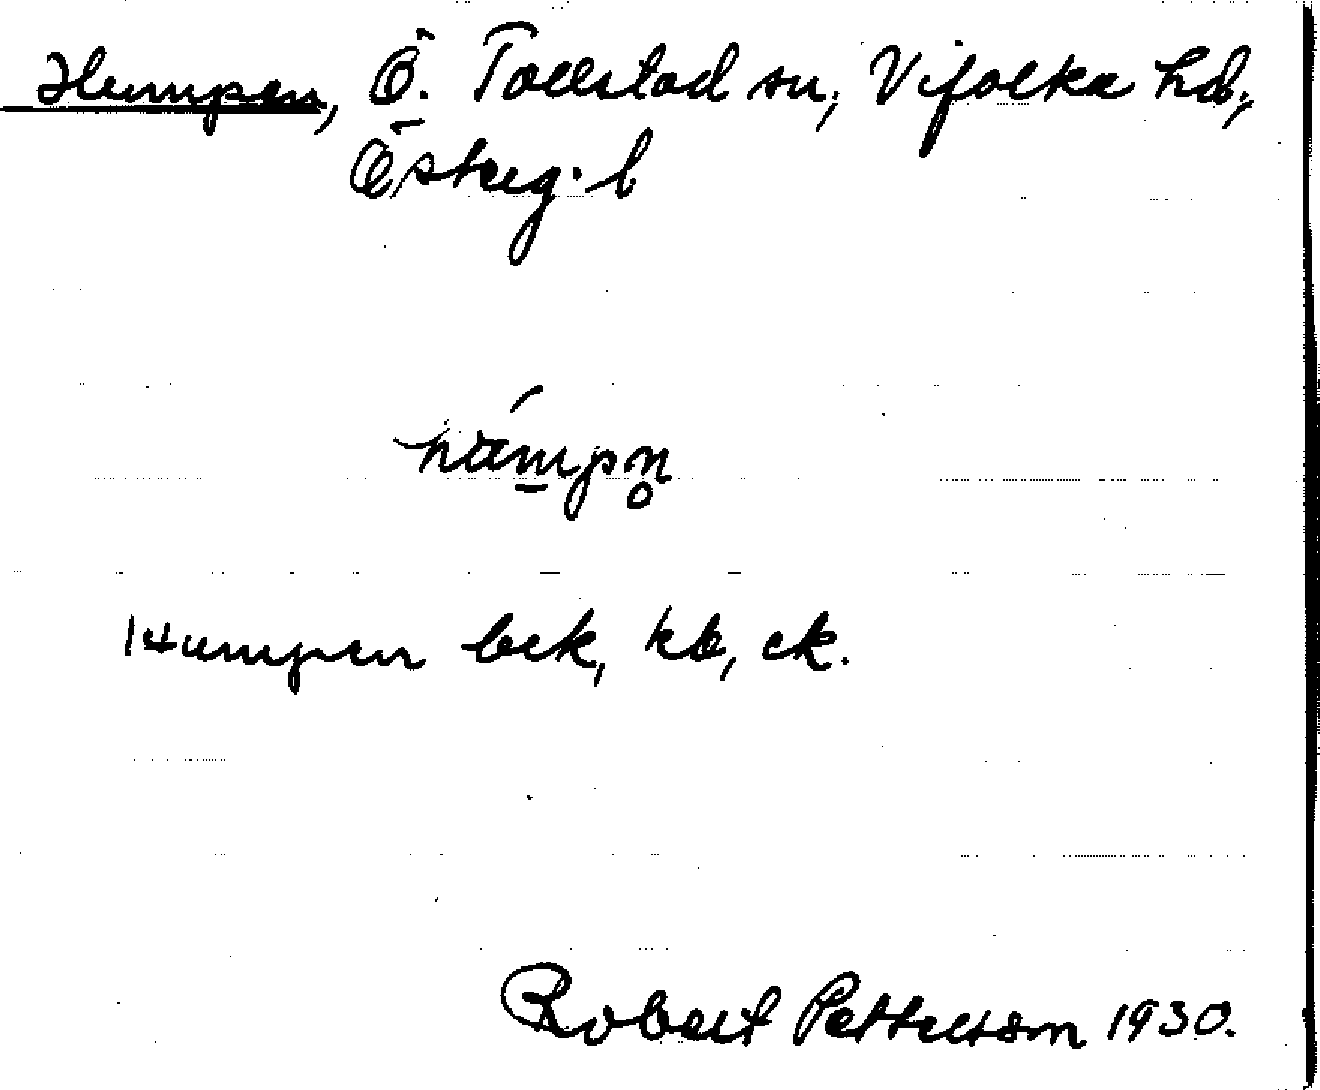 Hempen, Ö. Tollstad sn, Vifolka hd,
Österg. l
hämpn̥
Humpen bek, kb, ek.
Robert Pettersson 1930.